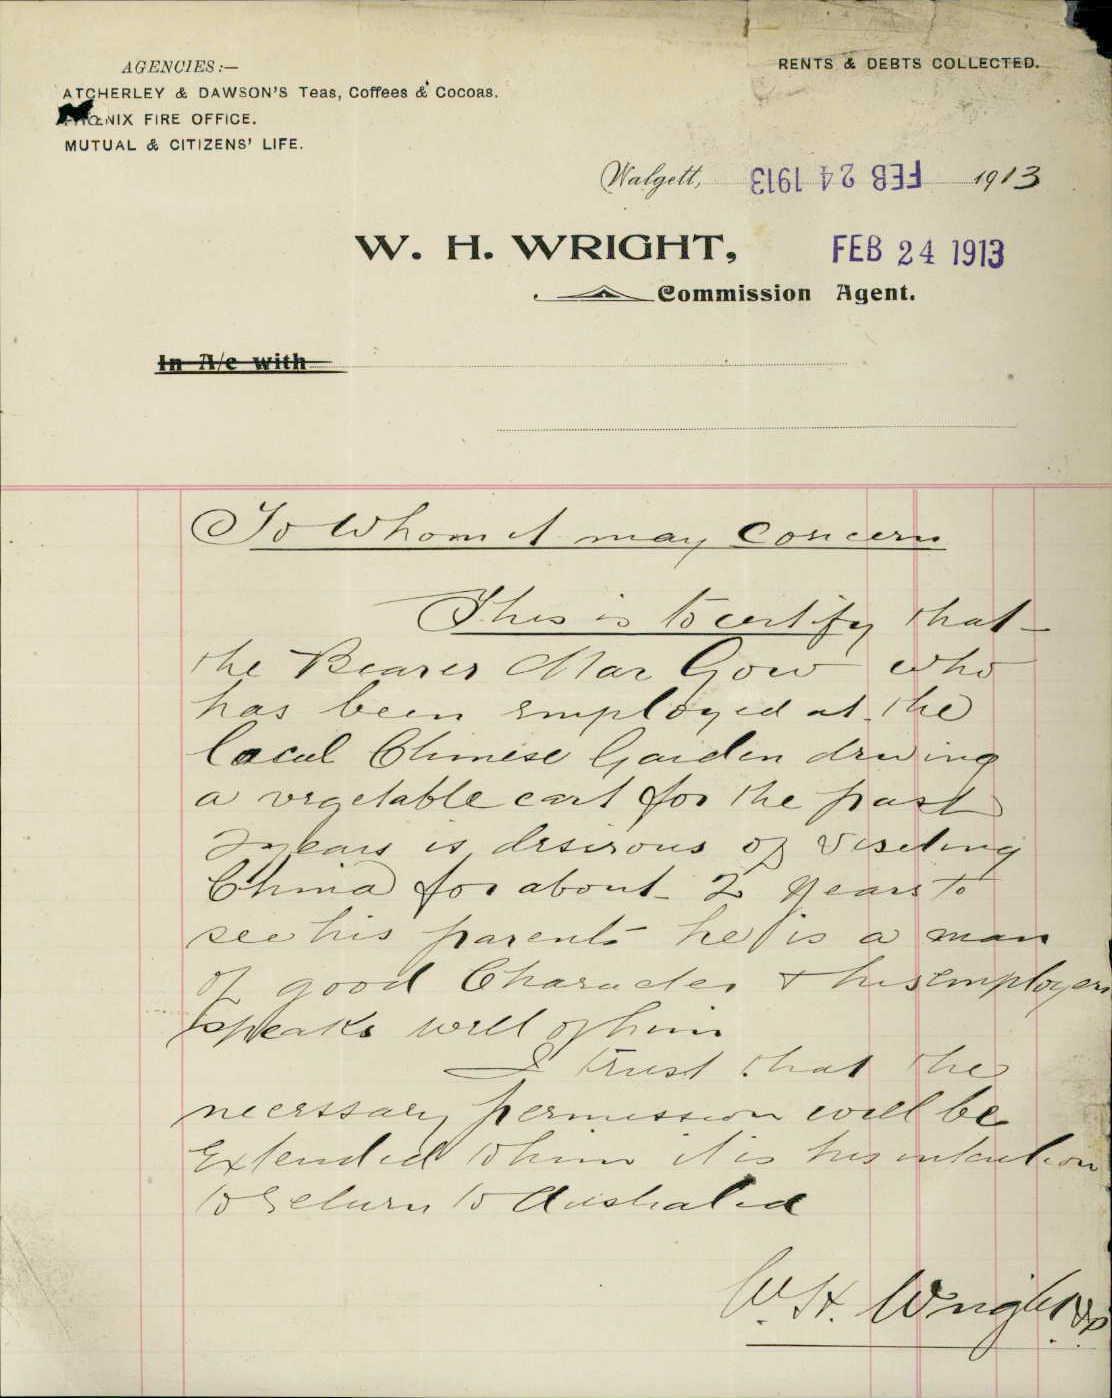 AGENCIES:—
RENTS & DEBTS COLLECTED.
ATCHERLEY & DAWSON'S Teas, Coffees & Cocoas.
PHŒNIX FIRE OFFICE.
MUTUAL & CITIZENS' LIFE.
Walgett, FEB 24 1913 1913
W. H. WRIGHT,
FEB 24 1913
Commission Agent.
In A/c with
To Whom it may Concern
This is to certify that
the Bearer Mar Gow who
has been employed at the
local Chinese Garden driving
a vegetable cart for the past
years is desirous of viseting
China for about 2 years to
see his parents he is a man
of good Character & his employer
speaks well of him
I trust that the
necessary permission will be
Extended to him it is his intention
to return to Australia
W. H. Wright